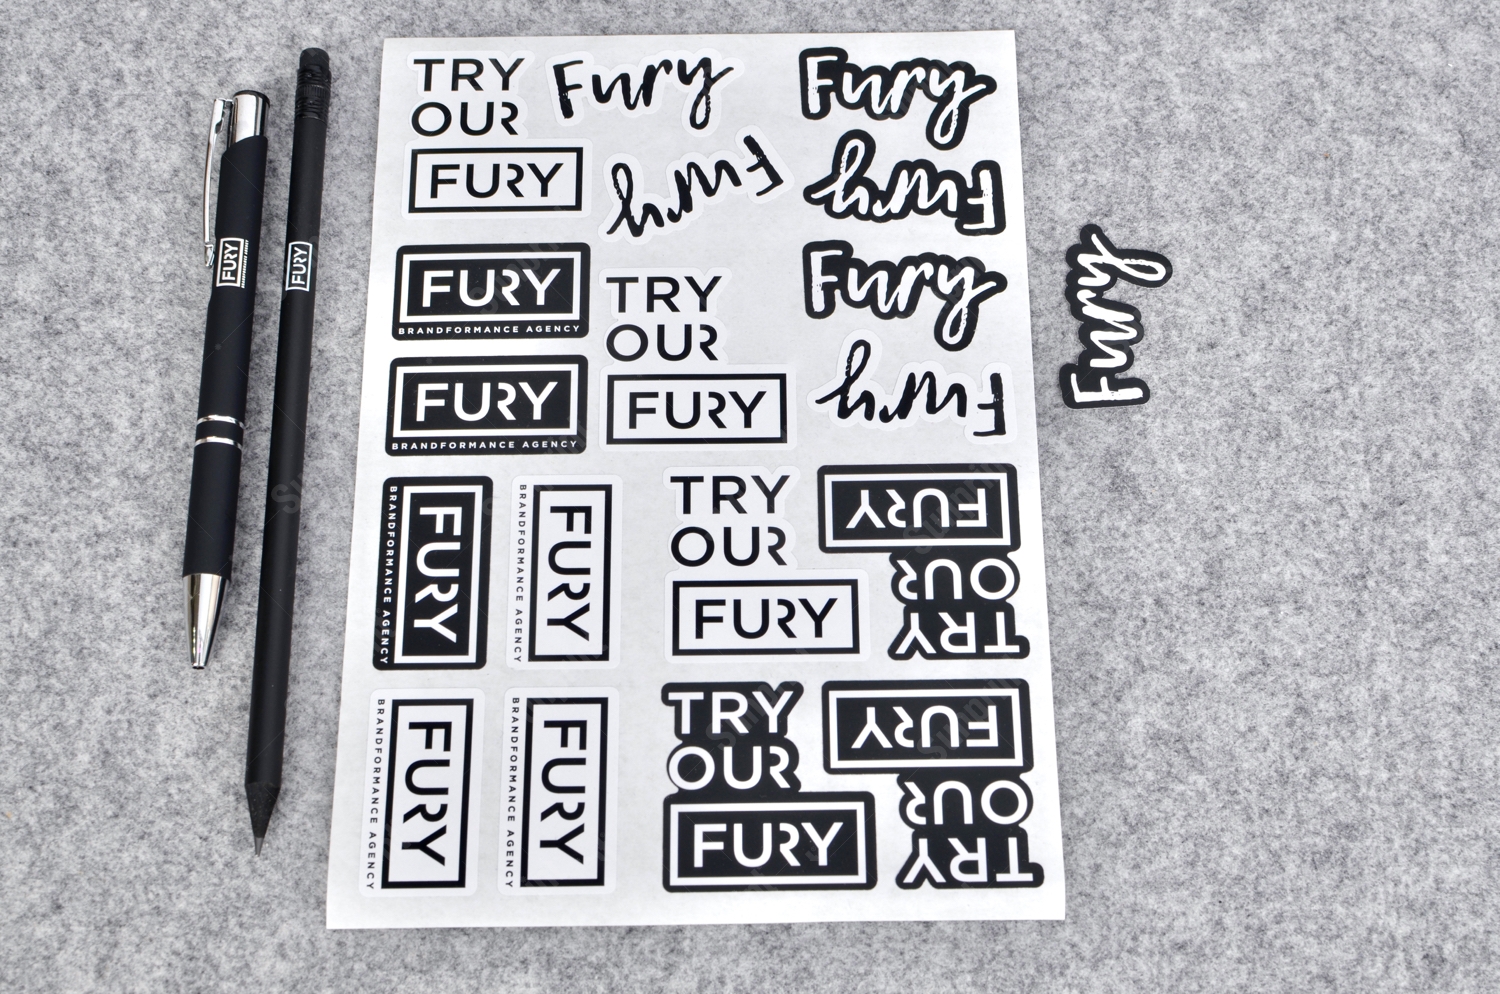 FURY
BRANDFORMANCE AGENCY
FURY
TRY
OUR
FURY
Fury
Fury
Fury
Fury
FURY
BRANDFORMANCE AGENCY
TRY
OUR
FURY
Fury
Fury
FURY
BRANDFORMANCE AGENCY
FURY
BRANDFORMANCE AGENCY
FURY
BRANDFORMANCE AGENCY
TRY
OUR
FURY
TRY
OUR
FURY
FURY
BRANDFORMANCE AGENCY
FURY
BRANDFORMANCE AGENCY
TRY
OUR
FURY
TRY
OUR
FURY
Fury